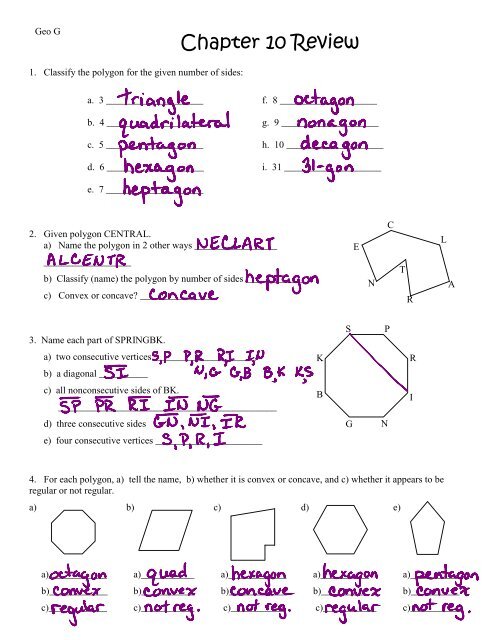 Geo G
Chapter 10 Review
1. Classify the polygon for the given number of sides:
a. 3 triangle f. 8 octagon
b. 4 quadrilateral g. 9 nonagon
c. 5 pentagon h. 10 decagon
d. 6 hexagon i. 31 31-gon
e. 7 heptagon
2. Given polygon CENTRAL.
a) Name the polygon in 2 other ways NECLART
ALCENTR
b) Classify (name) the polygon by number of sides heptagon
c) Convex or concave? Concave
C
E L
T
N A
R
3. Name each part of SPRINGBK.
a) two consecutive vertices S,P P,R R,I I,N
b) a diagonal SI N,G G,B B,K K,S
c) all nonconsecutive sides of BK.
SP PR RI IN NG
d) three consecutive sides GN, NI, IR
e) four consecutive vertices S, P, R, I
S P
K R
B I
G N
4. For each polygon, a) tell the name, b) whether it is convex or concave, and c) whether it appears to be
regular or not regular.
a) b) c) d) e)
a) octagon a) quad a) hexagon a) hexagon a) pentagon
b) convex b) convex b) concave b) convex b) convex
c) regular c) not reg. c) not reg. c) regular c) not reg.